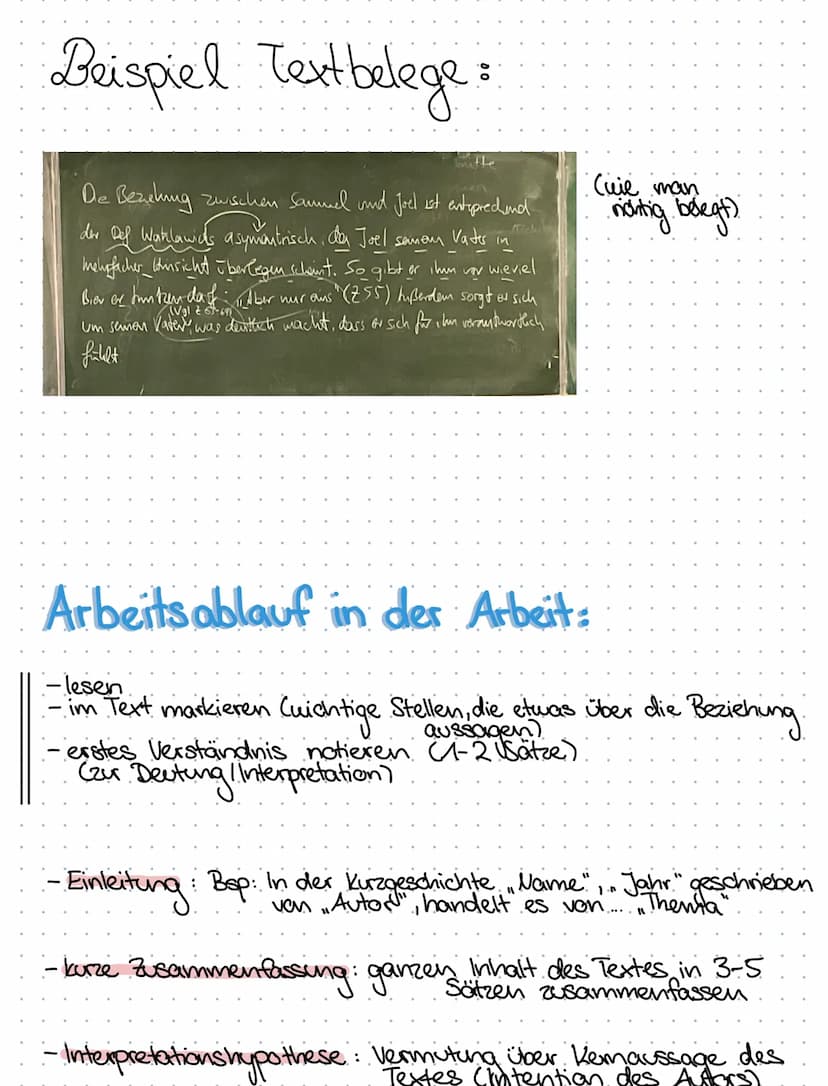 Beispiel Textbelege:
Die Beziehung zwischen Samuel und Joel ist entsprechend
der Def Watzlawicks asymmetrisch, da Joel seinem Vater in
mehrfacher Hinsicht überlegen scheint. So gibt er ihm vor wieviel
Bier er trinken darf: „Aber nur eins" (Z55) Außerdem sorgt er sich
(Vgl Z
um seinen Vater, was deutlich macht, dass er sich für ihn verantwortlich
fühlt
(wie man
richtig belegt)
Arbeitsablauf in der Arbeit:
- lesen
- im Text markieren (wichtige Stellen, die etwas über die Beziehung
aussagen)
- erstes Verständnis notieren (1-2 Sätze)
(zur Deutung/Interpretation)
- Einleitung: Bsp: In der Kurzgeschichte „Name", „Jahr" geschrieben
von „Autor", handelt es von... „Thema"
- kurze Zusammenfassung: ganzen Inhalt des Textes in 3-5
Sätzen zusammenfassen
- Interpretationshypothese: Vermutung über Kernaussage des
Textes (Intention des Autors)